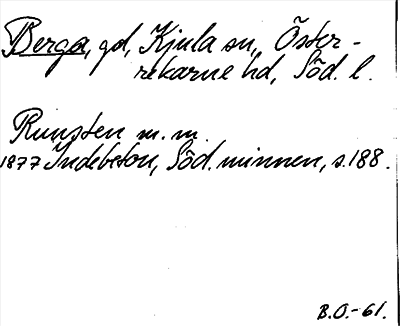 Berga, gd, Kjula sn, Öster-
rekarne hd, Söd. l.
Runsten m. m.
1877 Indebetou, Söd. minnen, s. 188.
B.O.-61.